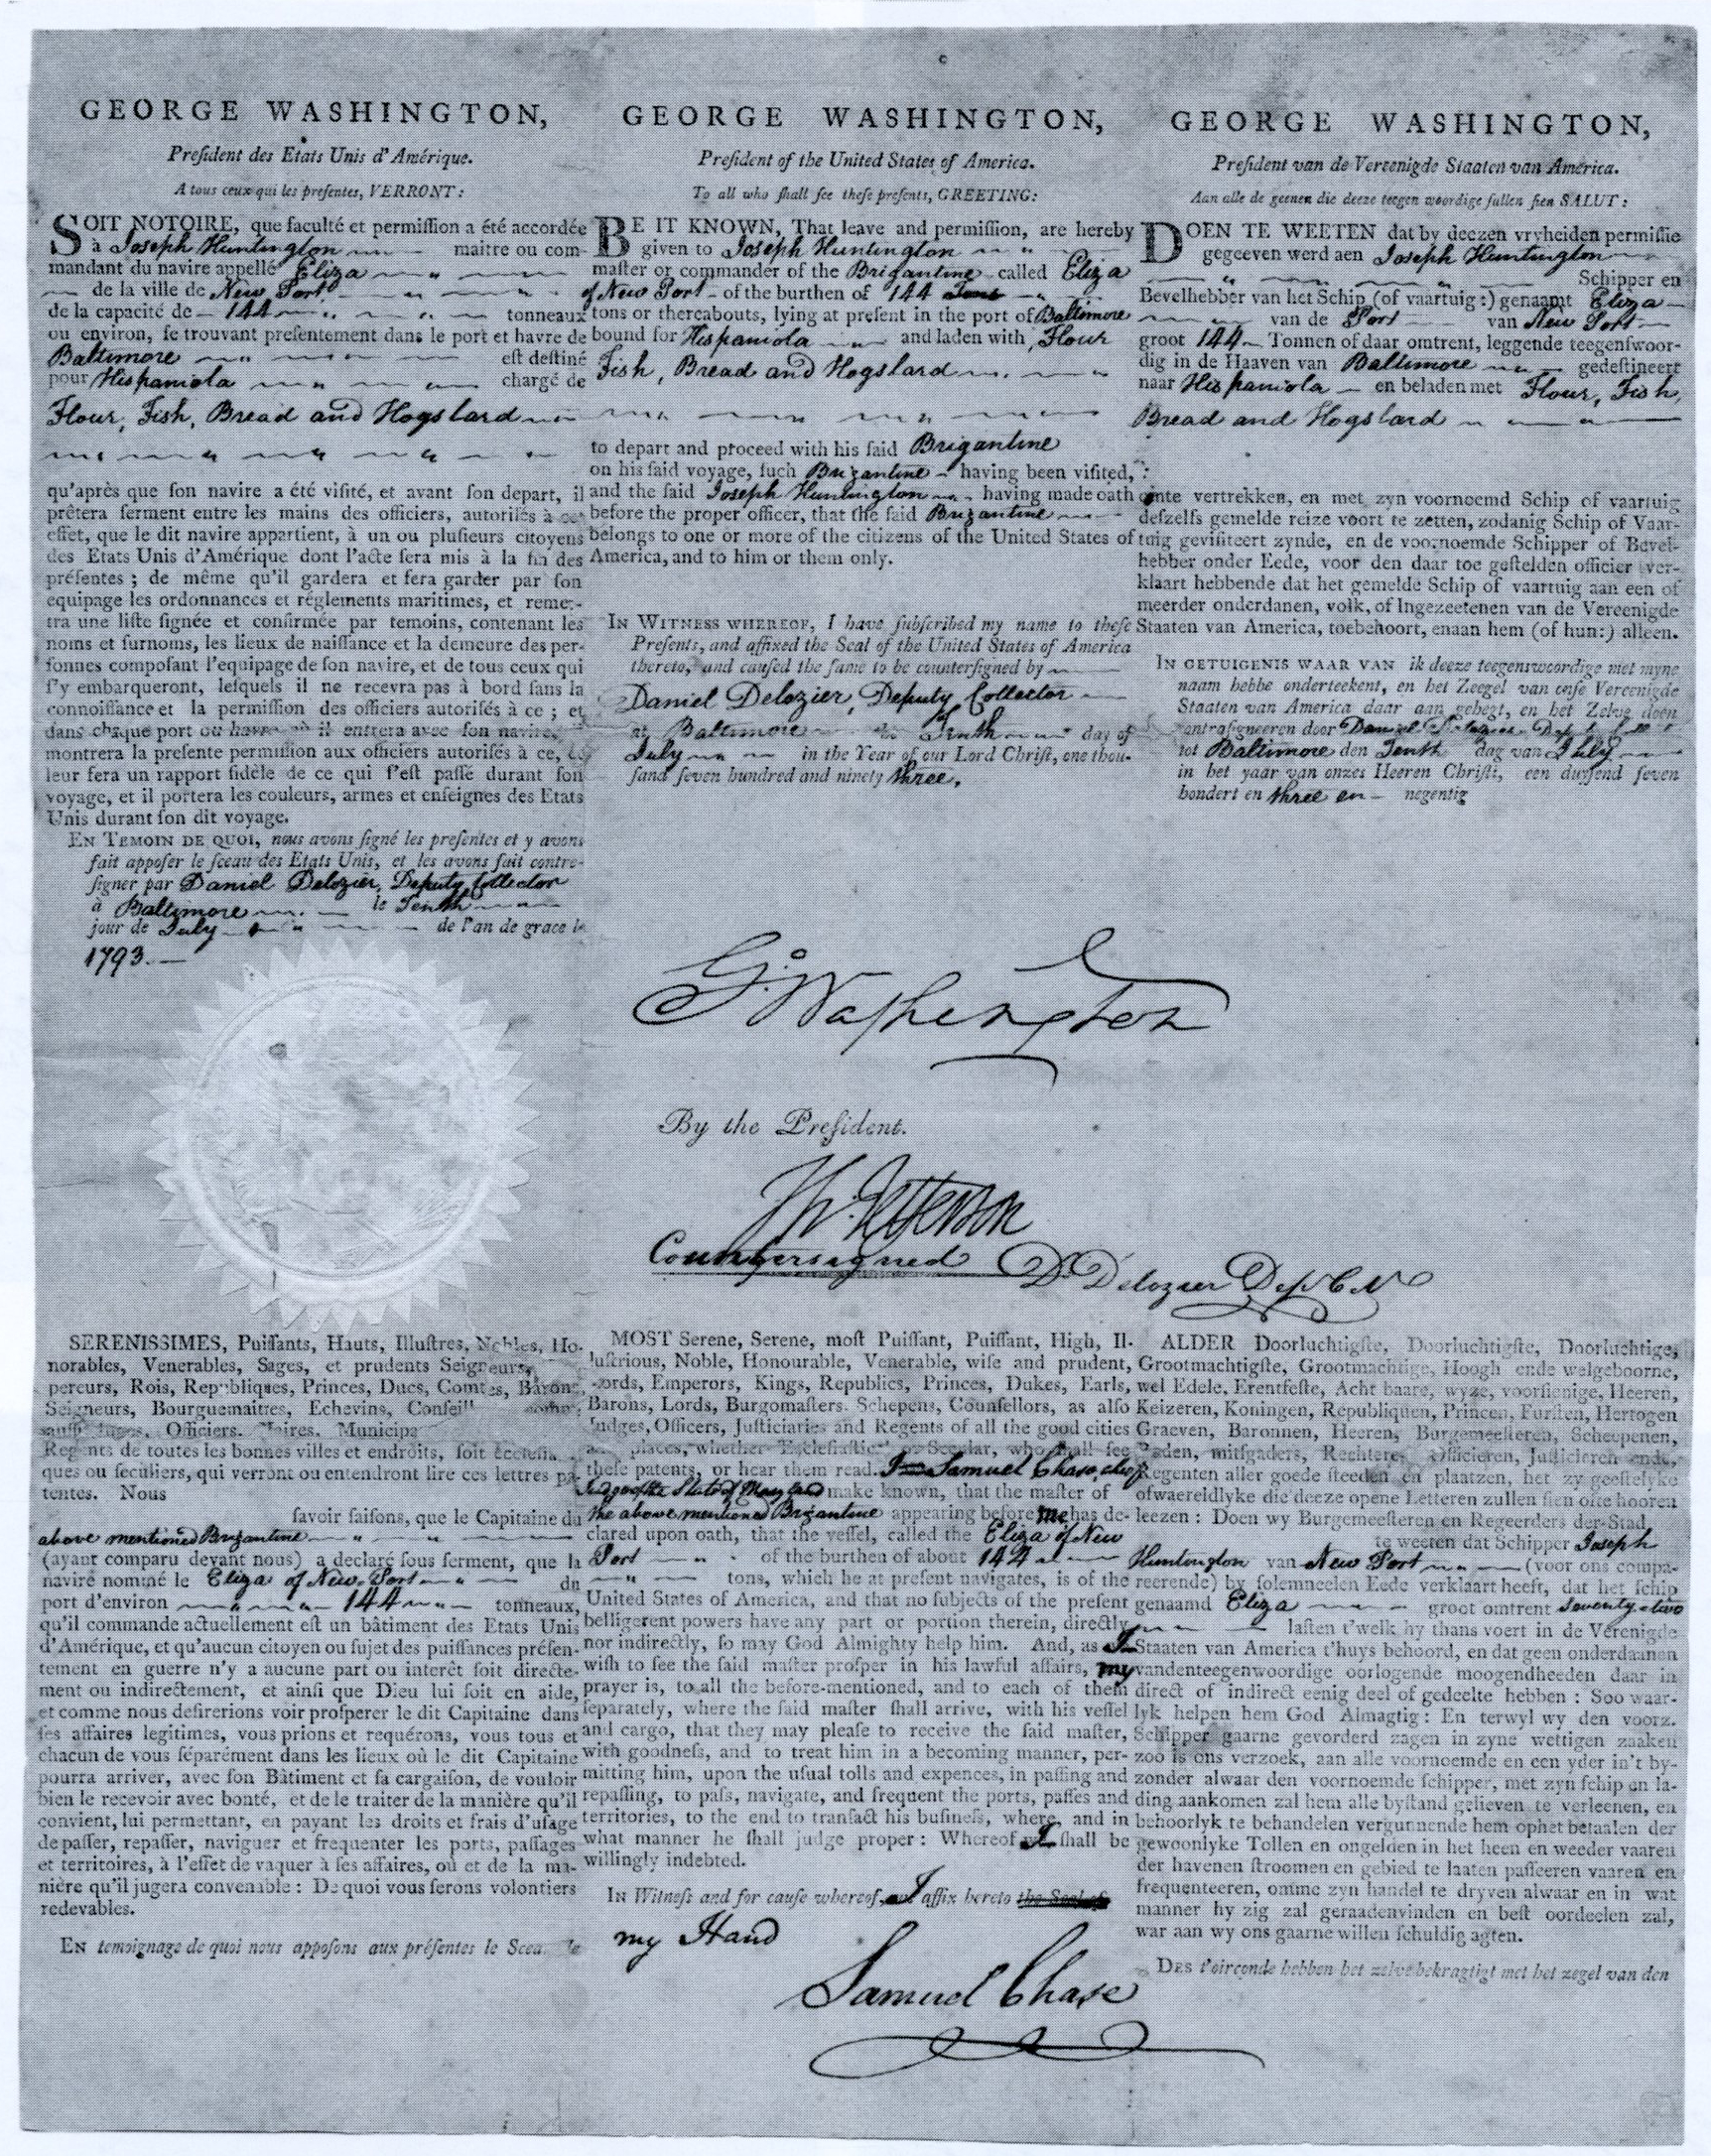 GEORGE WASHINGTON,
Preſident des Etats Unis d'Amérique.
A tous ceux qui les preſentes, VERRONT:
SOIT NOTOIRE, que faculté et permiſſion a été accordée
à Joseph Huntington maitre ou com-
mandant du navire appellé Eliza
de la ville de New Port
de la capacité de 144 tonneaux
ou environ, ſe trouvant preſentement dans le port et havre de
Baltimore eſt deſtiné
pour Hispaniola chargé de
Flour, Fish, Bread and Hogslard
qu'après que ſon navire a été viſité, et avant ſon depart, il
prêtera ſerment entre les mains des officiers, autoriſés à cet
effet, que le dit navire appartient, à un ou pluſieurs citoyens
des Etats Unis d'Amérique dont l'acte ſera mis à la fin des
préſentes; de même qu'il gardera et fera garder par ſon
equipage les ordonnances et réglements maritimes, et remet-
tra une liſte ſignée et confirmée par temoins, contenant les
noms et ſurnoms, les lieux de naiſſance et la demeure des per-
ſonnes compoſant l'equipage de ſon navire, et de tous ceux qui
ſ'y embarqueront, leſquels il ne recevra pas à bord ſans la
connoiſſance et la permiſſion des officiers autoriſés à ce; et
dans chaque port ou havre où il entrera avec ſon navire,
montrera la preſente permiſſion aux officiers autoriſés à ce,
leur fera un rapport fidèle de ce qui ſ'eſt paſſé durant ſon
voyage, et il portera les couleurs, armes et enſeignes des Etats
Unis durant ſon dit voyage.
EN TEMOIN DE QUOI, nous avons ſigné les preſentes et y avons
fait appoſer le ſceau des Etats Unis, et les avons fait contre-
ſigner par Daniel Delozier, Deputy Collector
à Baltimore le Tenth
jour de July de l'an de grace le
1793.
GEORGE WASHINGTON,
Preſident of the United States of America.
To all who ſhall ſee theſe preſents, GREETING:
BE IT KNOWN, That leave and permiſſion, are hereby
given to Joseph Huntington
maſter or commander of the Brigantine called Eliza
of New Port of the burthen of 144 Tons
tons or thereabouts, lying at preſent in the port of Baltimore
bound for Hispaniola and laden with, Flour
Fish, Bread and Hogslard
to depart and proceed with his ſaid Brigantine
on his ſaid voyage, ſuch Brigantine having been viſited,
and the ſaid Joseph Huntington having made oath
before the proper officer, that the ſaid Brigantine
belongs to one or more of the citizens of the United States of
America, and to him or them only.
IN WITNESS WHEREOF, I have ſubſcribed my name to theſe
Preſents, and affixed the Seal of the United States of America
thereto, and cauſed the ſame to be counterſigned by
Daniel Delozier, Deputy Collector
at Baltimore the Tenth day of
July in the Year of our Lord Chriſt, one thou-
ſand ſeven hundred and ninety three.
GEORGE WASHINGTON,
Preſident van de Vereenigde Staaten van America.
Aan alle de geenen die deeze teegen woordige ſullen ſien SALUT:
DOEN TE WEETEN dat by deezen vryheiden permiſſie
gegeeven werd aen Joseph Huntington
Schipper en
Bevelhebber van het Schip (of vaartuig:) genaamt Eliza
van de Port van New Port
groot 144 Tonnen of daar omtrent, leggende teegenſwoor-
dig in de Haaven van Baltimore gedeſtineert
naar Hispaniola en beladen met Flour, Fish,
Bread and Hogslard
omte vertrekken, en met zyn voornoemd Schip of vaartuig
deſzelfs gemelde reize voort te zetten, zodanig Schip of Vaar-
tuig geviſiteert zynde, en de voornoemde Schipper of Bevel-
hebber onder Eede, voor den daar toe geſtelden officier ver-
klaart hebbende dat het gemelde Schip of vaartuig aan een of
meerder onderdanen, volk, of Ingezeetenen van de Vereenigde
Staaten van America, toebehoort, enaan hem (of hun:) alleen.
IN GETUIGENIS WAAR VAN ik deeze teegenswoordige met myne
naam hebbe onderteekent, en het Zeegel van onſe Vereenigde
Staaten van America daar aan gehegt, en het Zelve doen
contraſigneeren door Daniel Delozier
tot Baltimore den Tenth dag van July
in het yaar van onzes Heeren Chriſti, een duyſend ſeven
hondert en three en negentig
G. Washington
By the Preſident.
Th. Jefferson
Countersigned D. Delozier Dep C. N
SERENISSIMES, Puiſſants, Hauts, Illuſtres, Nobles, Ho-
norables, Venerables, Sages, et prudents Seigneurs,
pereurs, Rois, Republiques, Princes, Ducs, Comtes, Barons,
Seigneurs, Bourguemaitres, Echevins, Conſeill
Juges, Officiers. Maires, Municipa
Regents de toutes les bonnes villes et endroits, ſoit eccleſia
ques ou ſeculiers, qui verront ou entendront lire ces lettres pa-
tentes. Nous
ſavoir faiſons, que le Capitaine du
above mentioned Brigantine
(ayant comparu devant nous) a declaré ſous ſerment, que la
navire nominé le Eliza of New Port du
port d'environ 144 tonneaux,
qu'il commande actuellement eſt un bâtiment des Etats Unis
d'Amérique, et qu'aucun citoyen ou ſujet des puiſſances préſen-
tement en guerre n'y a aucune part ou interêt ſoit directe-
ment ou indirectement, et ainſi que Dieu lui ſoit en aide,
et comme nous deſirerions voir proſperer le dit Capitaine dans
ſes affaires legitimes, vous prions et requérons, vous tous et
chacun de vous ſéparément dans les lieux où le dit Capitaine
pourra arriver, avec ſon Bâtiment et ſa cargaiſon, de vouloir
bien le recevoir avec bonté, et de le traiter de la manière qu'il
convient, lui permettant, en payant les droits et frais d'uſage
de paſſer, repaſſer, naviguer et frequenter les ports, paſſages
et territoires, à l'effet de vaquer à ſes affaires, où et de la ma-
nière qu'il jugera convenable: De quoi vous ſerons volontiers
redevables.
EN temoignage de quoi nous appoſons aux préſentes le Scea de
MOST Serene, Serene, moſt Puiſſant, Puiſſant, High, Il-
luſtrious, Noble, Honourable, Venerable, wiſe and prudent,
ords, Emperors, Kings, Republics, Princes, Dukes, Earls,
Barons, Lords, Burgomaſters. Schepens, Counſellors, as alſo
Judges, Officers, Juſticiaries and Regents of all the good cities
places, whether Eccleſiaſtical or Secular, who ſhall ſee
theſe patents, or hear them read. I Samuel Chase, chief
Judge of the State of Maryland make known, that the maſter of
the above mentioned Brigantine appearing before me has de-
clared upon oath, that the veſſel, called the Eliza of New
Port of the burthen of about 144
tons, which he at preſent navigates, is of the
United States of America, and that no ſubjects of the preſent
belligerent powers have any part or portion therein, directly
nor indirectly, ſo may God Almighty help him. And, as I
wiſh to ſee the ſaid maſter proſper in his lawful affairs, my
prayer is, to all the before-mentioned, and to each of them
ſeparately, where the ſaid maſter ſhall arrive, with his veſſel
and cargo, that they may pleaſe to receive the ſaid maſter,
with goodneſs, and to treat him in a becoming manner, per-
mitting him, upon the uſual tolls and expences, in paſſing and
repaſſing, to paſs, navigate, and frequent the ports, paſſes and
territories, to the end to tranſact his buſineſs, where, and in
what manner he ſhall judge proper: Whereof I ſhall be
willingly indebted.
IN Witneſs and for cauſe whereof, I affix hereto the Seal of
my Hand
Samuel Chase
ALDER Doorluchtigſte, Doorluchtigſte, Doorluchtige,
Grootmachtigſte, Grootmachtige, Hoogh ende welgeboorne,
wel Edele, Erentfeſte, Acht baare, wyze, voorſienige, Heeren,
Keizeren, Koningen, Republiquen, Princen, Furſten, Hertogen
Graeven, Baronnen, Heeren, Burgemeeſteren, Scheepenen,
Raden, mitſgaders, Rechters, Officieren, Juſticieren ende,
Regenten aller goede ſteeden en plaatzen, het zy geeſtelyke
ofwaereldlyke die deeze opene Letteren zullen ſien ofte hooren
leezen: Doen wy Burgemeeſteren en Regeerders der Stad
te weeten dat Schipper Joseph
Huntington van New Port (voor ons compa-
reerende) by ſolemneelen Eede verklaart heeft, dat het ſchip
genaamd Eliza groot omtrent seventy-two
laſten t'welk hy thans voert in de Verenigde
Staaten van America t'huys behoord, en dat geen onderdaanen
vandenteegenwoordige oorlogende moogendheeden daar in
direct of indirect eenig deel of gedeelte hebben: Soo waar-
lyk helpen hem God Almagtig: En terwyl wy den voorz.
Schipper gaarne gevorderd zagen in zyne wettigen zaaken
zoo is ons verzoek, aan alle voornoemde en een yder in't by-
zonder alwaar den voornoemde ſchipper, met zyn ſchip en la-
ding aankomen zal hem alle byſtand gelieven te verleenen, en
behoorlyk te behandelen vergunnende hem ophet betaalen der
gewoonlyke Tollen en ongelden in het heen en weeder vaaren
der havenen ſtroomen en gebied te laaten paſſeeren vaaren en
frequenteeren, omme zyn handel te dryven alwaar en in wat
manner hy zig zal geraadenvinden en beſt oordeelen zal,
war aan wy ons gaarne willen ſchuldig agten.
DES t'oirconde hebben het zelve bekragtigt met het zegel van den